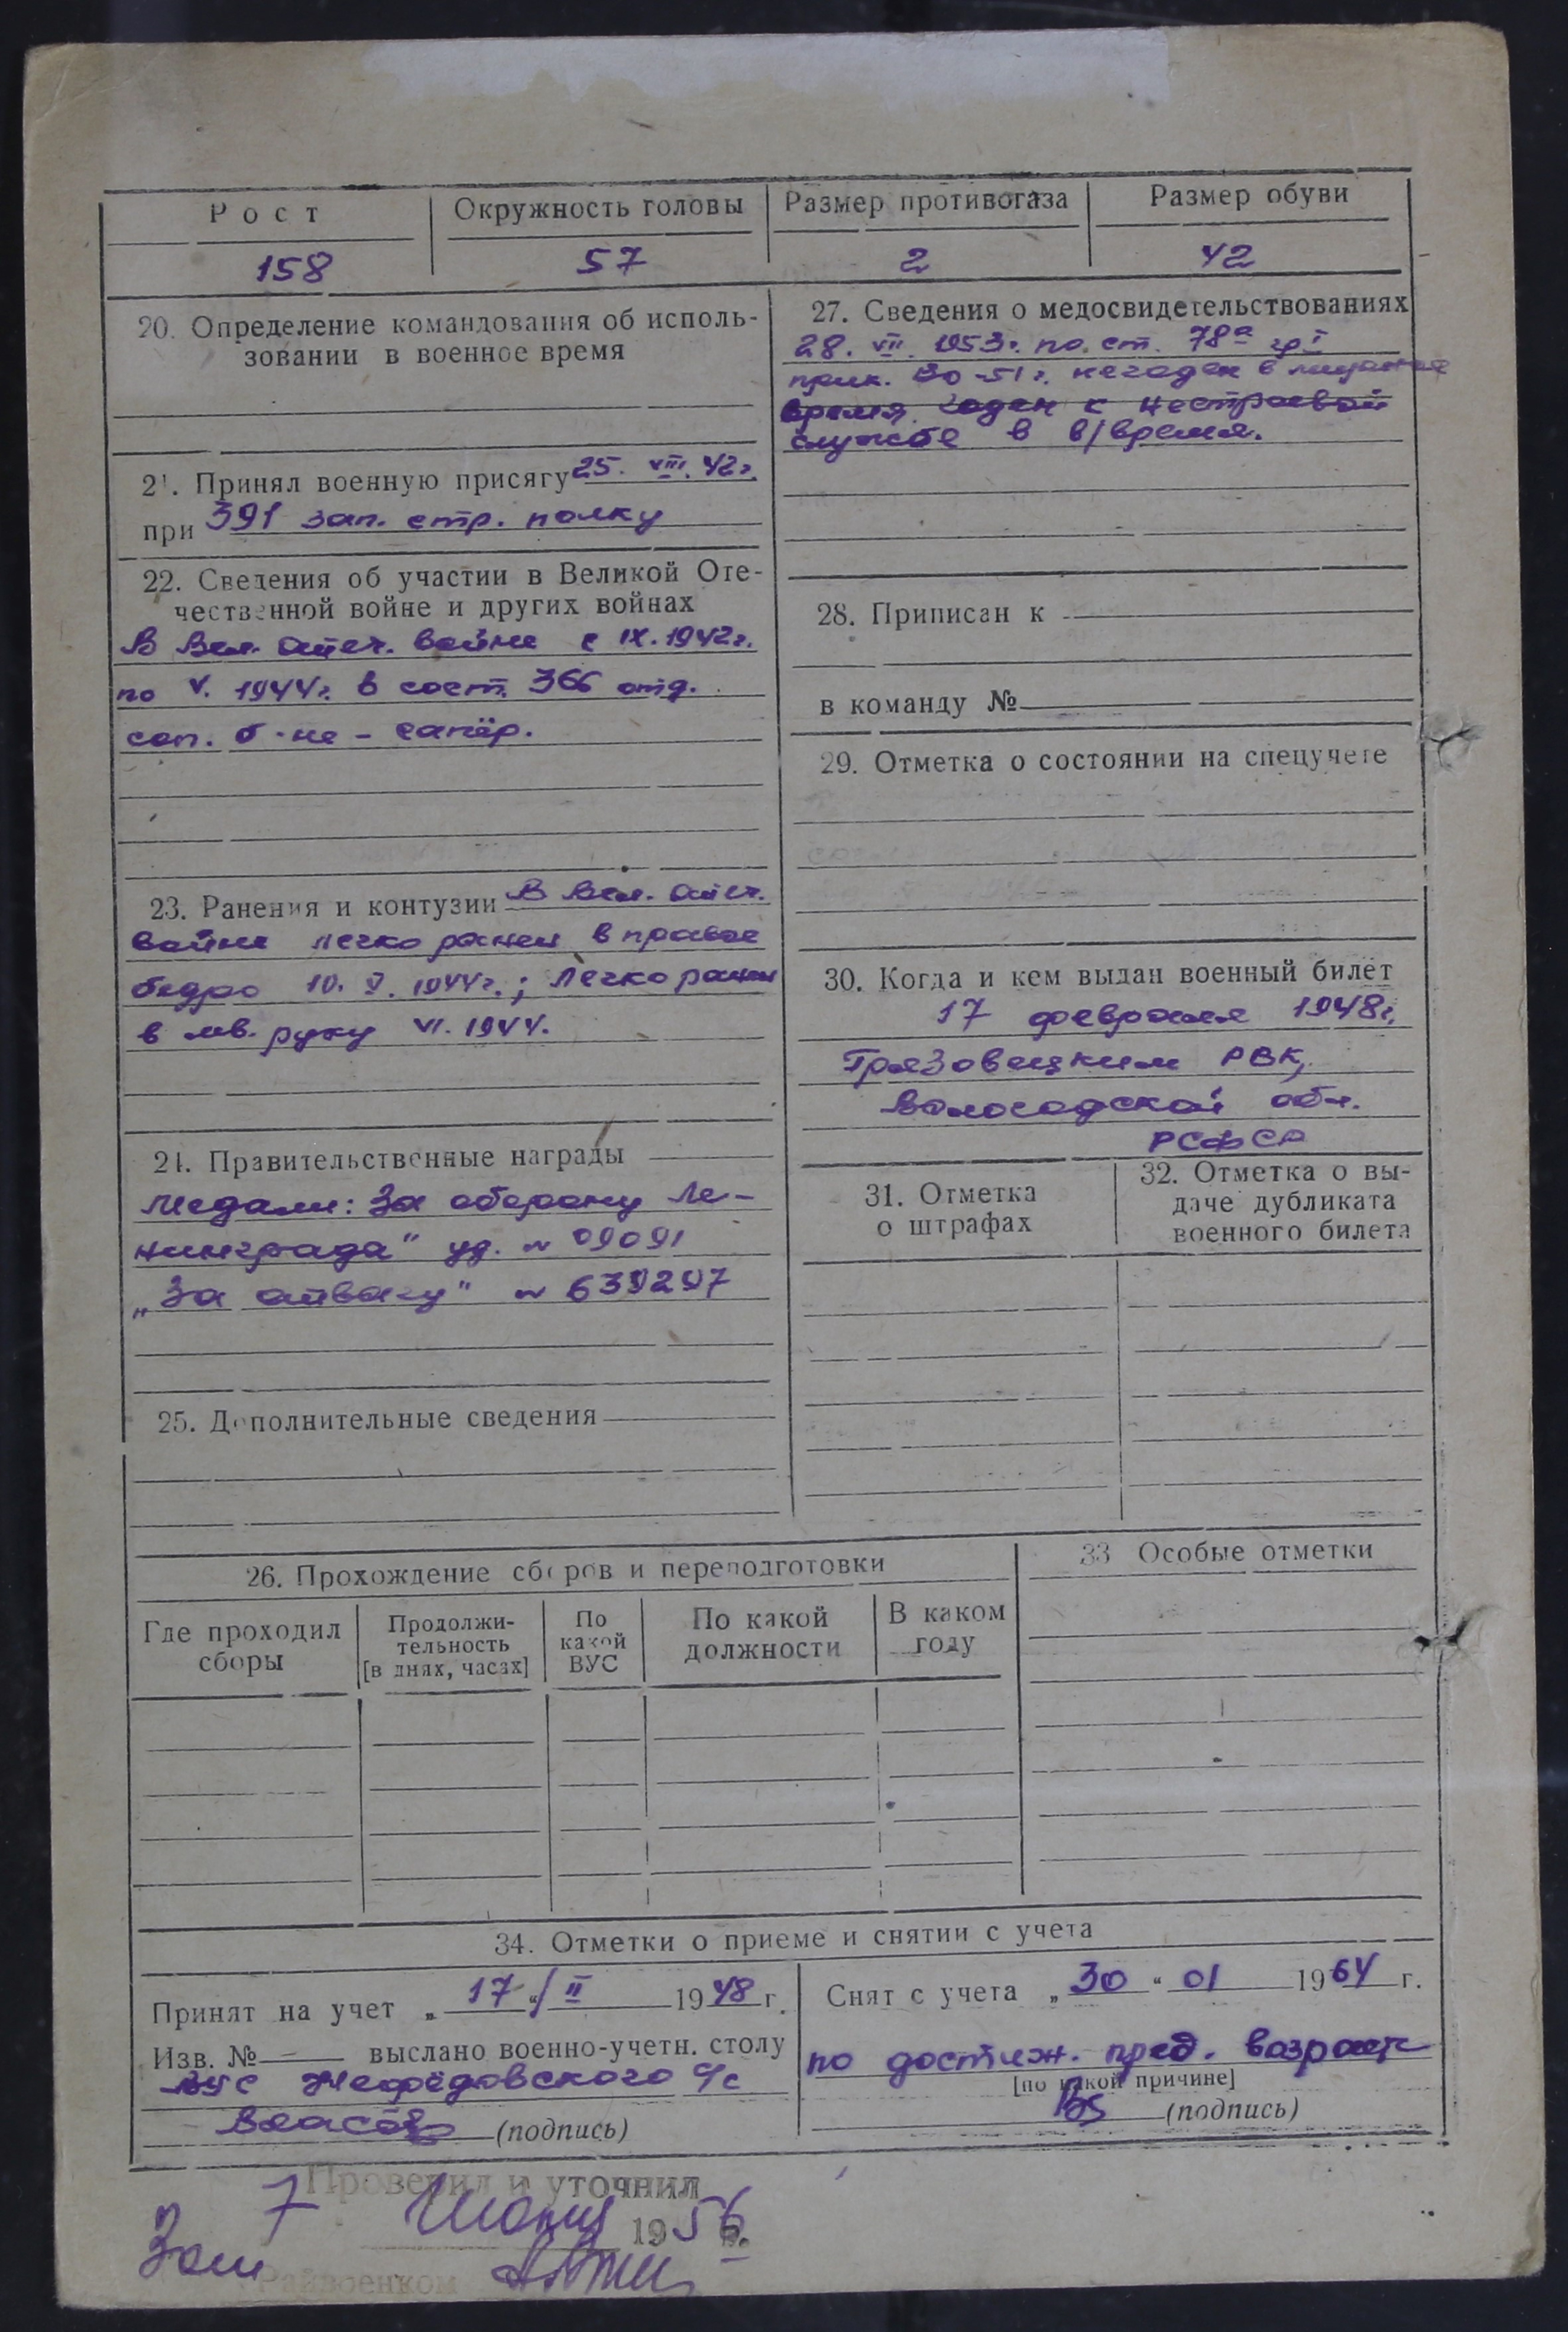 Рост Окружность головы Размер противогаза Размер обуви
158 57 2 42
20. Определение командования об исполь-
зовании в военное время
21. Принял военную присягу 25. VIII. 42 г.
при 391 зап. стр. полку
22. Сведения об участии в Великой Оте-
чественной войне и других войнах
В Вел. Отеч. войне с IX. 1942 г.
по V. 1944 г. в сост. 366 отд.
сап. б-не - сапёр.
23. Ранения и контузии В Вел. Отеч.
войне легко ранен в правое
бедро 10. V. 1944 г.; легко ранен
в лев. руку VI. 1944.
24. Правительственные награды
Медали: За оборону Ле-
нинграда" уд. № 09091
„За отвагу" № 639297
25. Дополнительные сведения
27. Сведения о медосвидетельствованиях
28. VII. 1953 г. по ст. 78а гр I
прик. 130-51 г. негоден в мирное
время годен к нестроевой
службе в в/время.
28. Приписан к
в команду №
29. Отметка о состоянии на спецучете
30. Когда и кем выдан военный билет
17 февраля 1948 г.
Грязовецким РВК,
Вологодской обл.
РСФСР
31. Отметка
о штрафах
32. Отметка о вы-
даче дубликата
военного билета
26. Прохождение сборов и переподготовки
Где проходил
сборы
Продолжи-
тельность
[в днях, часах]
По
какой
ВУС
По какой
должности
В каком
году
33 Особые отметки
34. Отметки о приеме и снятии с учета
Принят на учет „ 17 “ II 1948 г.
Изв. № — выслано военно-учетн. столу
ВУС Нефёдовского с/с
Власов (подпись)
Снят с учета „ 30 “ 01 1964 г.
по достиж. пред. возраста
[по какой причине]
(подпись)
Проверил и уточнил
7 Июня 1956.
Зам Райвоенком